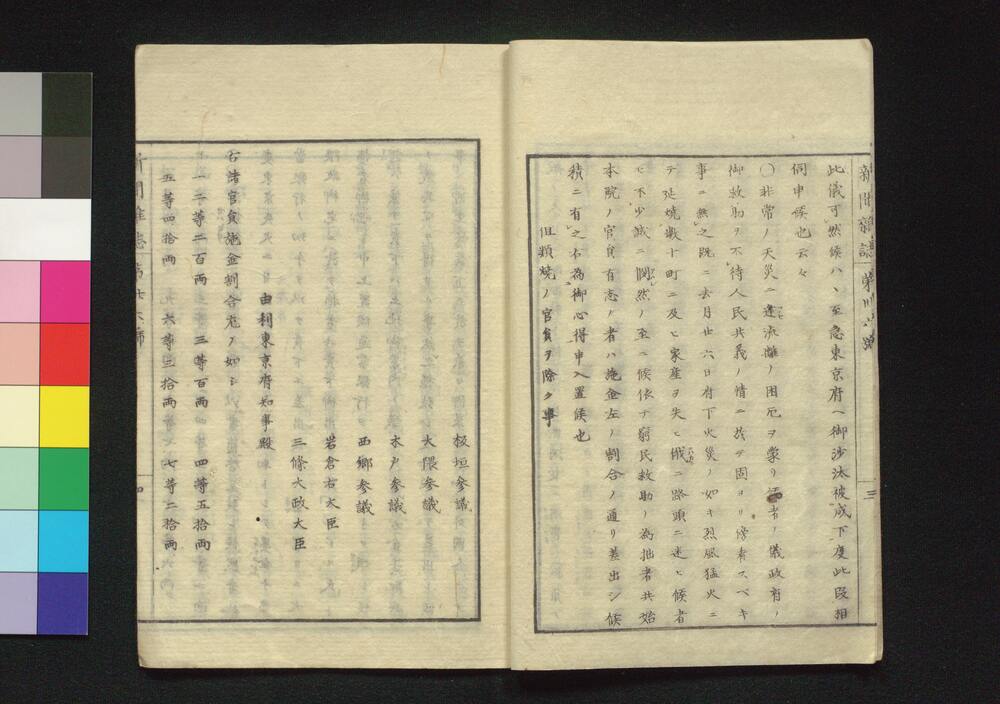 新聞雜誌 第卅六號
三
此儀可然候ハヽ至急東京府ヘ御沙汰被成下度此段相
伺申候也云々
〇非常ノ天災ニ逢流離ノ困厄ヲ蒙リ候者ノ儀政府ノ
御救助ヲ不待人民共義ノ情ニ於テ固ヨリ傍看スベキ
事ニ無之既ニ去月廿六日府下火災ノ如キ烈風猛火ニ
テ延燒數十町ニ及ヒ家産ヲ失ヒ俄ニ路頭ニ迷ヒ候者
モ不少誠ニ憫然ノ至ニ候依テ窮民救助ノ為拙者共始
本院ノ官員有志ノ者ハ施金左ノ割合ノ通リ差出シ候
積ニ有之右為御心得申入置候也
但類燒ノ官員ヲ除ク事
板垣參議
大隈參議
木戸參議
西郷參議
岩倉右大臣
三條太政大臣
由利東京府知事殿
右諸官員施金割合左ノ如シ
一二等二百両 三等百両 四等五拾両
五等四拾両 六等三拾両 七等二拾両
新聞雜誌 第卅六號
四